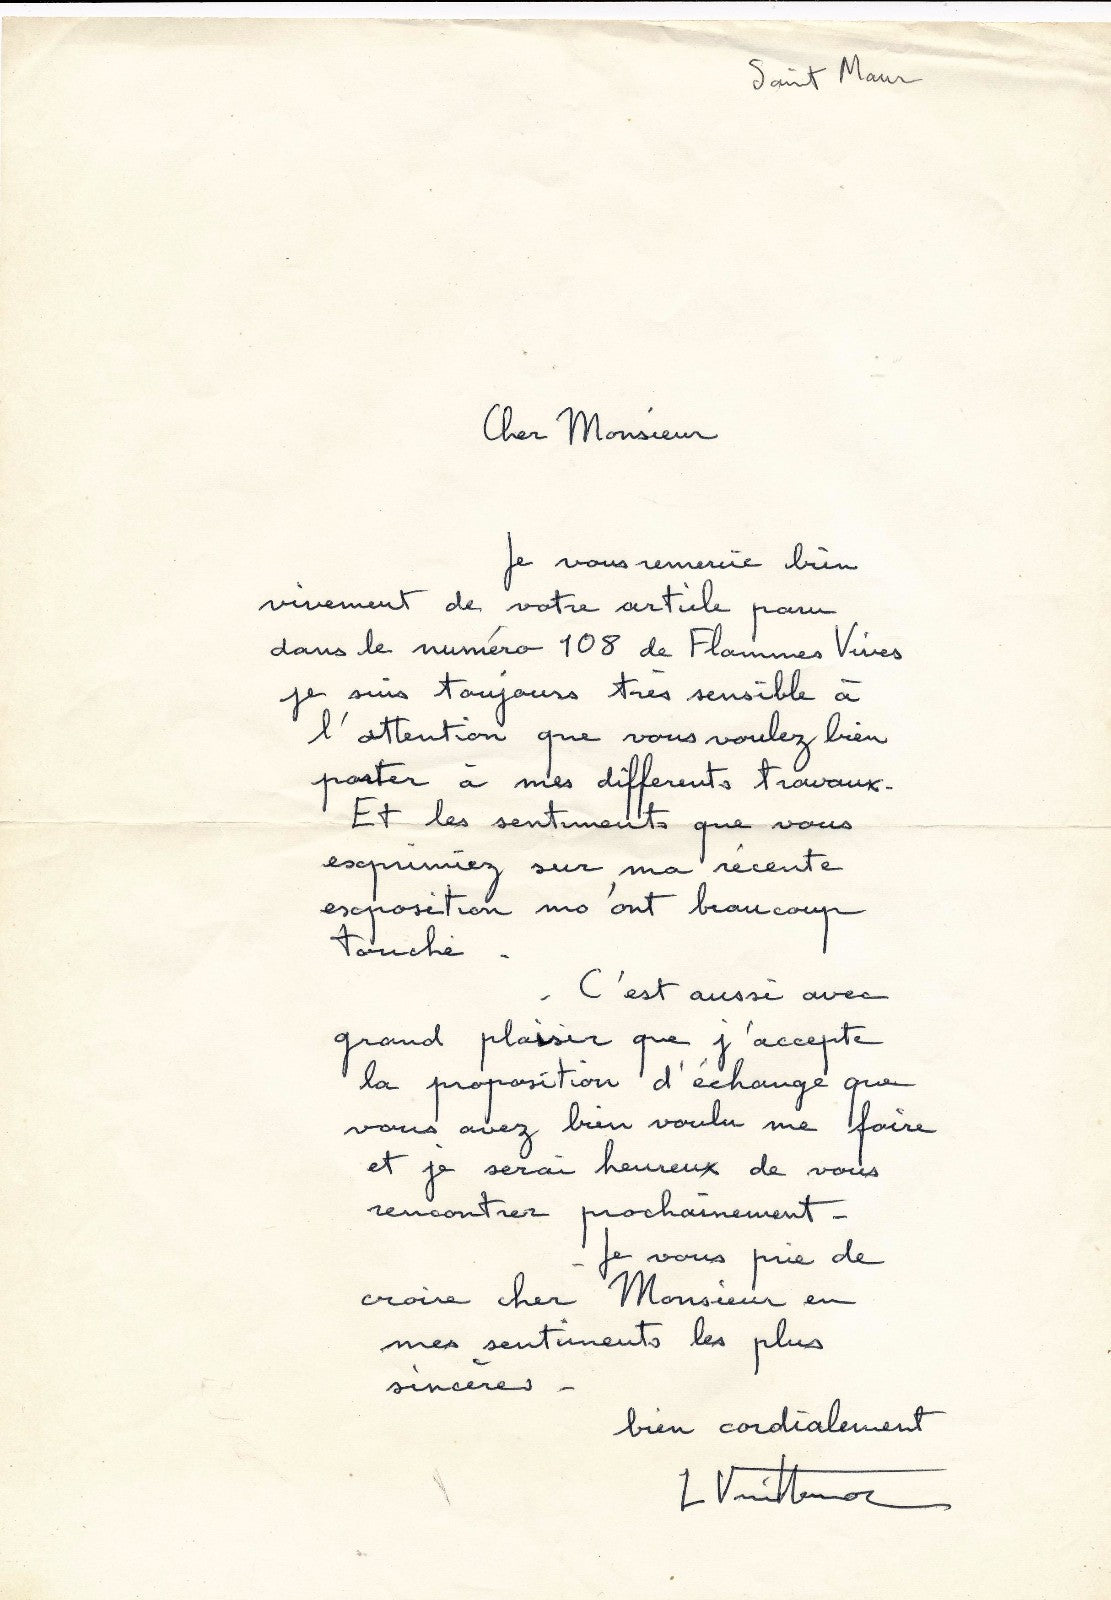 Saint Maur
Cher Monsieur
Je vous remercie bien
vivement de votre article paru
dans le numéro 108 de Flammes Vives
je suis toujours très sensible à
l'attention que vous voulez bien
porter à mes differents travaux.
Et les sentiments que vous
exprimiez sur ma récente
exposition mo'ont beaucoup
touché.
- C'est aussi avec
grand plaisir que j'accepte
la proposition d'échange que
vous avez bien voulu me faire
et je serai heureux de vous
rencontrer prochainement -
- Je vous prie de
croire cher Monsieur en
mes sentiments les plus
sincères -
bien cordialement